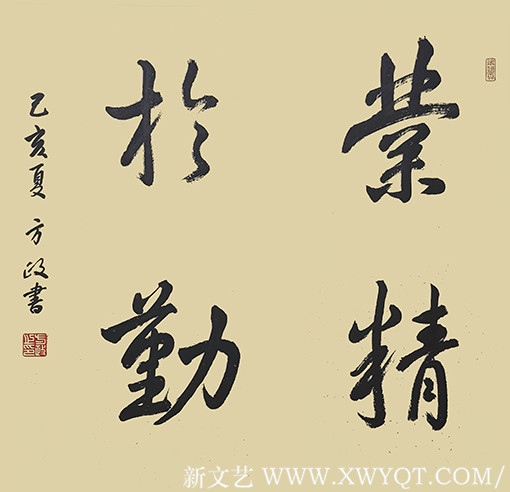 業精
於勤
乙亥夏 方政書
新文艺 WWW.XWYQT.COM/